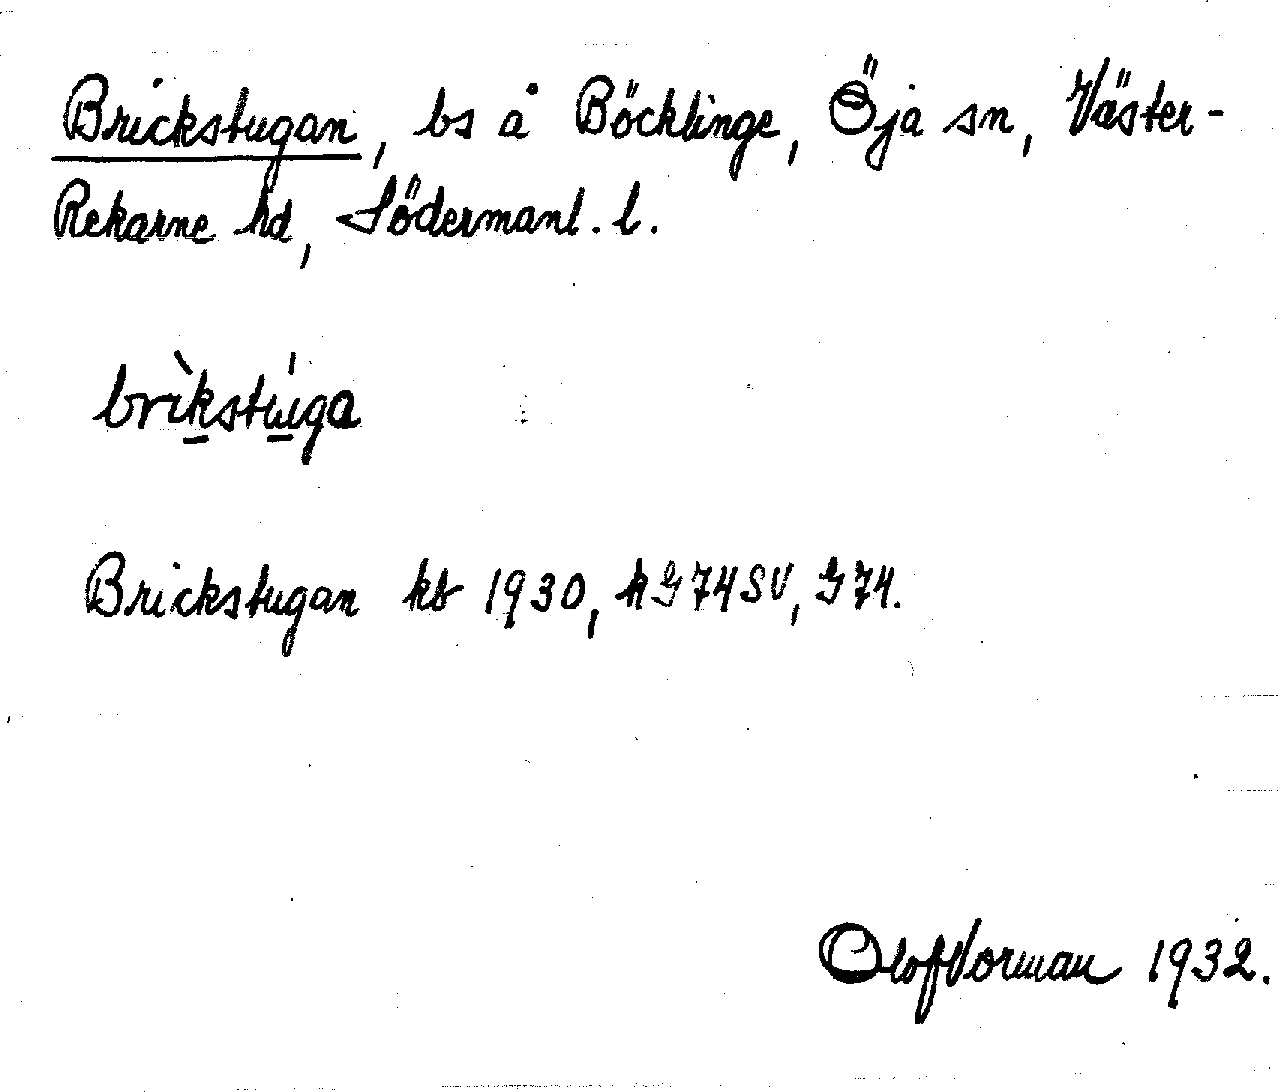 Brickstugan, bs å Böcklinge, Öja sn, Väster-
Rekarne hd, Södermanl. l.
brìkstúga
Brickstugan kb 1930, k G74SV, G74.
Olof Vorman 1932.